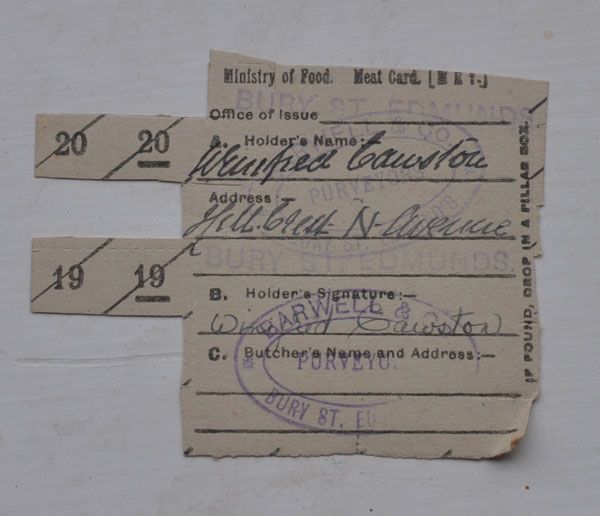 Ministry of Food. Meat Card. [M R 1.]
BURY ST. EDMUNDS.
Office of Issue
20 20
A. Holder's Name:-
Winifred Cawston
BARWELL & CO
PURVEYORS
BURY ST. EDMUNDS
Address:-
Hill Crest N. Avenue
BURY ST. EDMUNDS.
19 19
B. Holder's Signature:-
Winifred Cawston
C. Butcher's Name and Address:-
BARWELL & CO
PURVEYO
BURY ST. EDM
IF FOUND, DROP IN A PILLAR BOX.